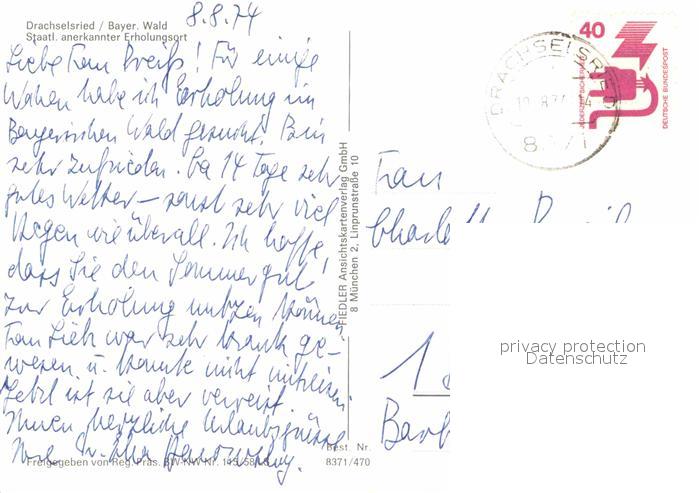 8.8.74
Drachselsried / Bayer. Wald
Staatl. anerkannter Erholungsort
Liebe Frau Preiß! Für einige
Wochen habe ich Erholung im
Bayerischen Wald gesucht. Bin
sehr zufrieden. Ca 14 Tage sehr
gutes Wetter – sonst sehr viel
Regen wie überall. Ich hoffe,
dass Sie den Sommer gut
zur Erholung nutzen können.
Frau Lieb war sehr krank ge-
wesen u. konnte nicht mitreisen.
Jetzt ist sie aber verreist.
Ihnen herzliche Urlaubsgrüsse
Freigegeben von Reg. Präs.
FIEDLER Ansichtskartenverlag GmbH
8 München 2, Linprunstraße 10
Best. Nr.
8371/470
40
DEUTSCHE BUNDESPOST
DRACHSELSRIED
Frau
privacy protection
Datenschutz